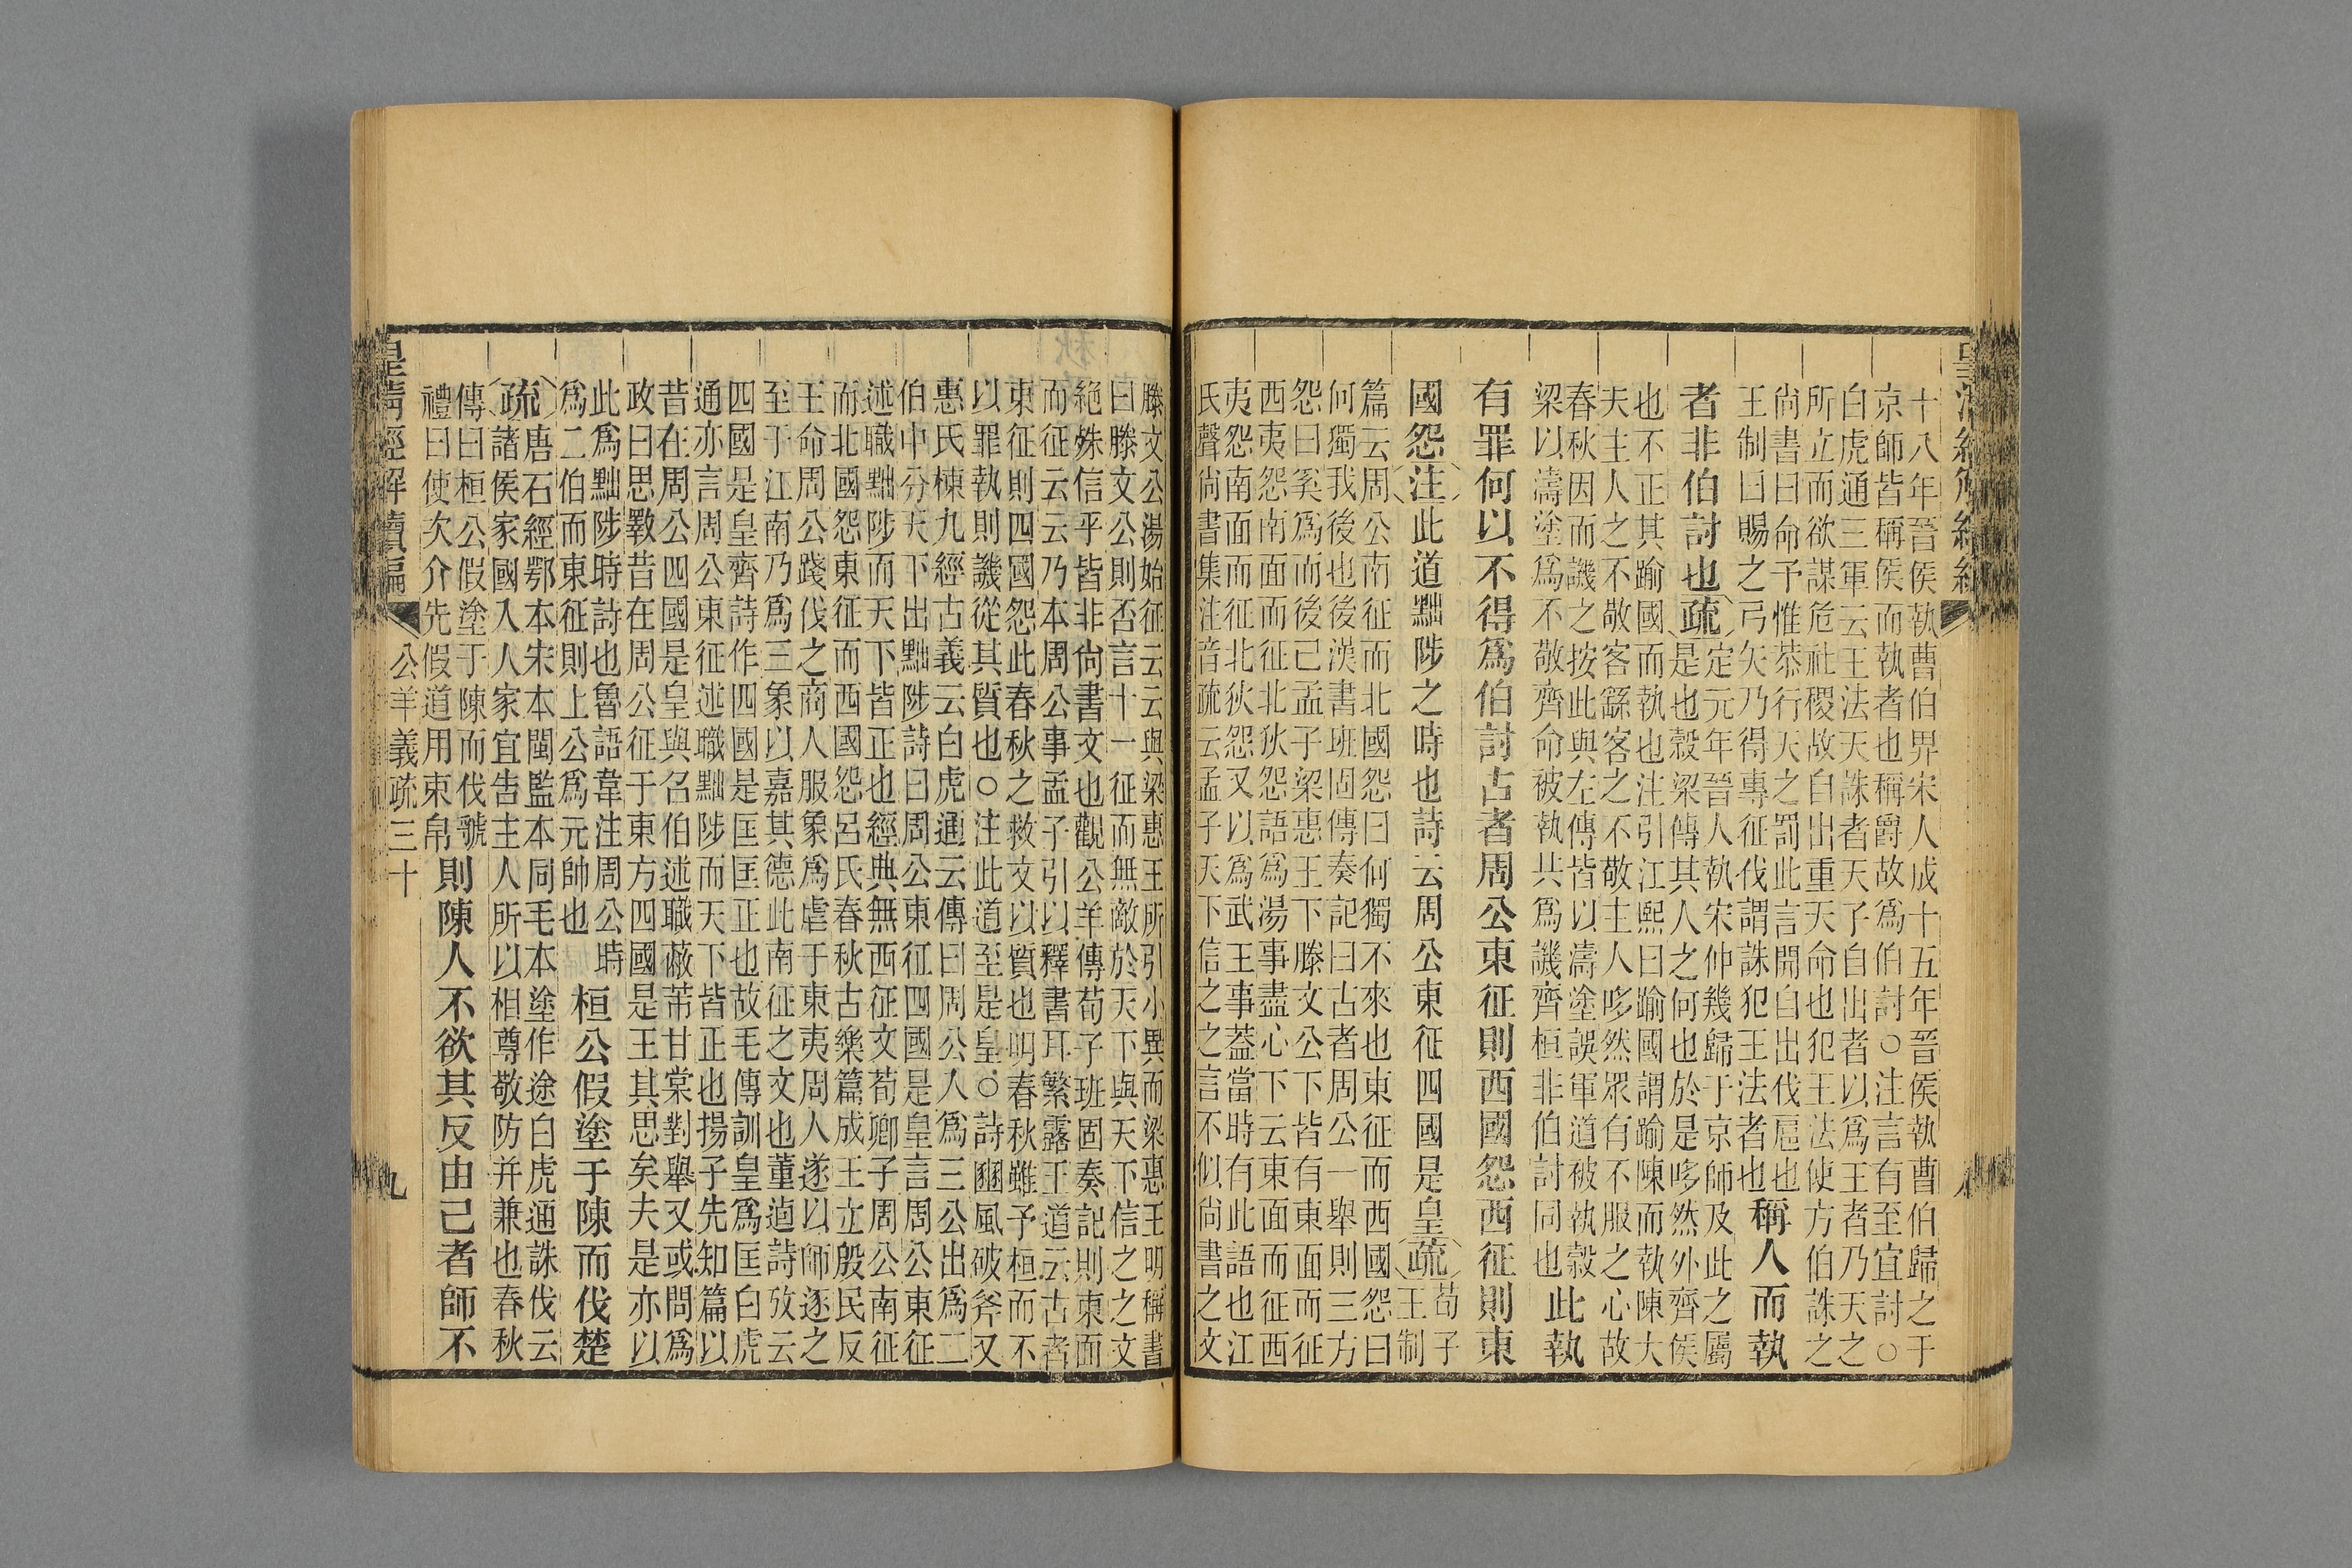 十八年晉侯執曹伯畀宋人成十五年晉侯執曹伯歸之于
京師皆稱侯而執者也稱爵故爲伯討○注言有至宜討○
白虎通三軍云王法天誅者天子自出者以爲王者乃天之
所立而欲謀危社稷故自出重天命也犯王法使方伯誅之
尙書曰命予惟恭行天之罰此言開自出伐扈也
王制曰賜之弓矢乃得專征伐謂誅犯王法者也
稱人而執
者非伯討也疏
定元年晉人執宋仲幾歸于京師及此之屬
是也穀梁傳其人之何也於是哆然外齊侯
也不正其踰國而執也注引江熙曰踰國謂踰陳而執陳大
夫主人之不敬客繇客之不敬主人哆然眾有不服之心故
春秋因而譏之按此與左傳皆以濤塗誤軍道被執穀
梁以濤塗爲不敬齊命被執共爲譏齊桓非伯討同也
此執
有罪何以不得爲伯討古者周公東征則西國怨西征則東
國怨注此道黜陟之時也詩云周公東征四國是皇疏
荀子
王制
篇云周公南征而北國怨曰何獨不來也東征而西國怨曰
何獨我後也後漢書班固傳奏記曰古者周公一舉則三方
怨曰奚爲而後己孟子梁惠王下滕文公下皆有東面而征
西夷怨南面而征北狄怨語爲湯事盡心下云東面而征西
夷怨南面而征北狄怨又以爲武王事蓋當時有此語也江
氏聲尙書集注音疏云孟子天下信之之言不似尙書之文
滕文公湯始征云云與梁惠王所引小異而梁惠王明稱書
曰滕文公則否言十一征而無敵於天下與天下信之之文
絕姝信乎皆非尙書文也觀公羊傳荀子班固奏記則東面
而征云云乃本周公事孟子引以釋書耳繁露王道云古者
東征則四國怨此春秋之救文以質也明春秋雖予桓而不
以罪執則譏從其質也○注此道至是皇○詩豳風破斧又
惠氏棟九經古義云白虎通云傳曰周公人爲三公出爲二
伯中分天下出黜陟詩曰周公東征四國是皇言周公東征
述職黜陟而天下皆正也經典無西征文荀卿子周公南征
而北國怨東征而西國怨呂氏春秋古樂篇成王立殷民反
王命周公踐伐之商人服象爲虐于東夷周人遂以師逐之
至于江南乃爲三象以嘉其德此南征之文也董逌詩攷云
四國是皇齊詩作四國是匡匡正也故毛傳訓皇爲匡白虎
通亦言周公東征述職黜陟而天下皆正也揚子先知篇以
昔在周公四國是皇與召伯述職蔽芾甘棠對舉又或問爲
政曰思斁昔在周公征于東方四國是王其思矣夫是亦以
此爲黜陟時詩也魯語韋注周公時
爲二伯而東征則上公爲元帥也
桓公假塗于陳而伐楚
疏
唐石經鄂本宋本閩監本同毛本塗作途白虎通誅伐云
諸侯家國入人家宜告主人所以相尊敬防并兼也春秋
傳曰桓公假塗于陳而伐虢
禮曰使次介先假道用束帛
則陳人不欲其反由己者師不
皇清經解續編
公羊義疏三十
九